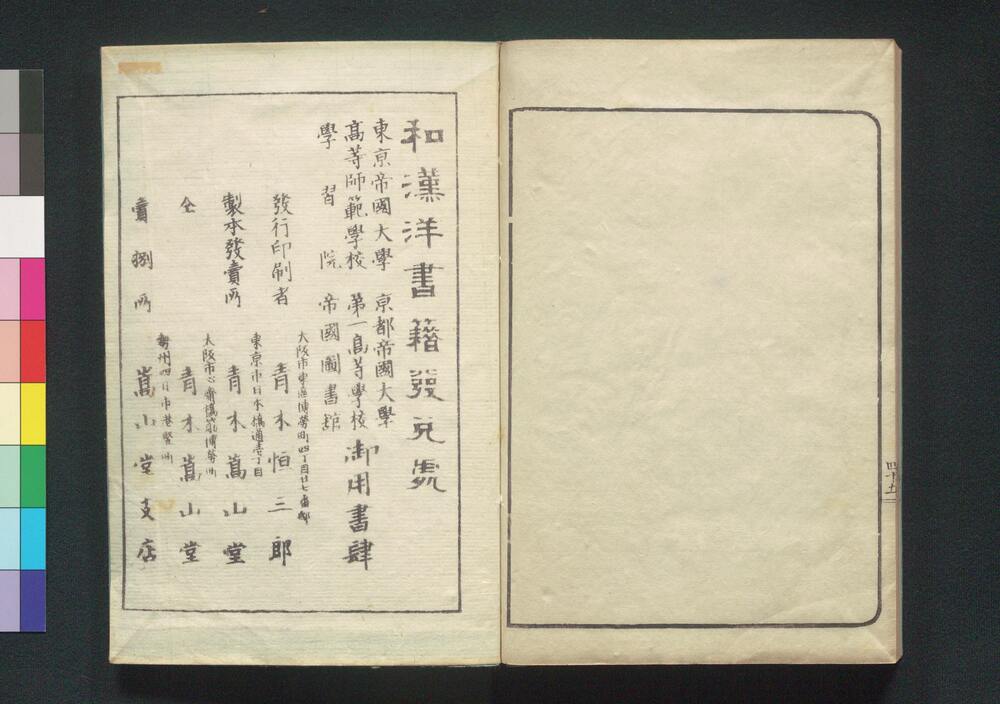 四十五
和漢洋書籍發兌處
東京帝國大學 京都帝國大學
高等師範學校 第一高等學校 御用書肆
學習院 帝國圖書館
大阪市東區博勞町四丁目廿七番邸
發行印刷者 青木恒三郎
東京市日本橋通壱丁目
製本發賣所 青木嵩山堂
大阪市心齋橋筋博勞町
仝 青木嵩山堂
勢州四日市港竪町
賣捌所 嵩山堂支店